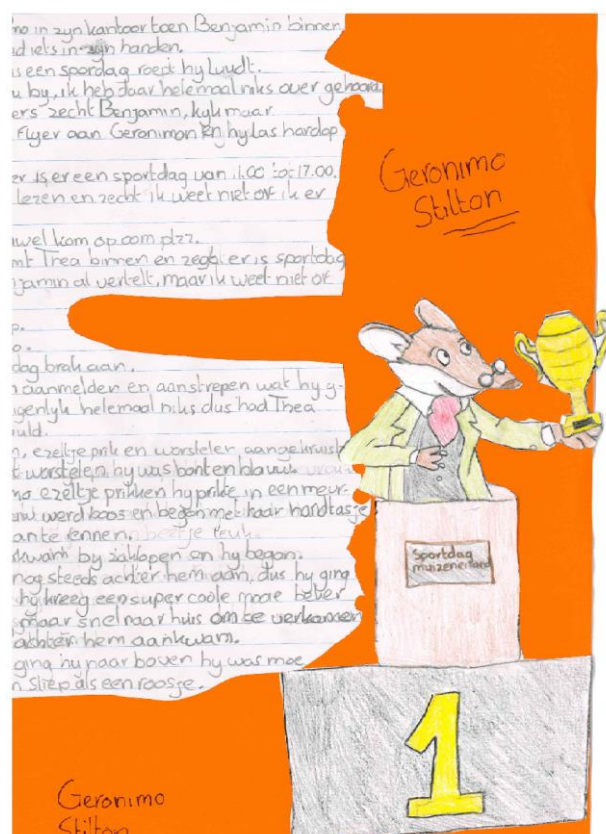 mo in zyn kantoor toen Benjamin binnen
d iets in zyn handen.
is een spordag roept hy luydt.
u by, ik heb daar helemaal niks over gehoord
ers zecht Benjamin, kyk maar
Flyer aan Geronimon en hy las hardop
er is er een sportdag van 11.00 tot 17.00.
lezen en zecht ik weet niet of ik er
wel kom op oom plzz.
mt Thea binnen en zegt er is sportdag
njamin al vertelt, maar ik weet niet of
p.
o.
dag brak aan.
n aanmelden en aanstrepen wat hy g-
genlyk helemaal niks dus had Thea
uld.
n, ezeltje prik en worstelen aangekruisk
t worstelen hy was bont en blauw.
mo ezeltje prikken hy prikte in een meur-
werd boos en begon met haar handtasje
an te rennen.
kwam by zaklopen en hy began.
nog steeds achter hem aan, dus hy ging
hy kreeg een super coole moe beker
maar snel naar huis om te verkomen
achter hem aankwam.
ging hy naar boven hy was moe
n sliep als een roosje.
Geronimo
Stilton
Sportdag
muizeneiland
1
Geronimo
Stilton